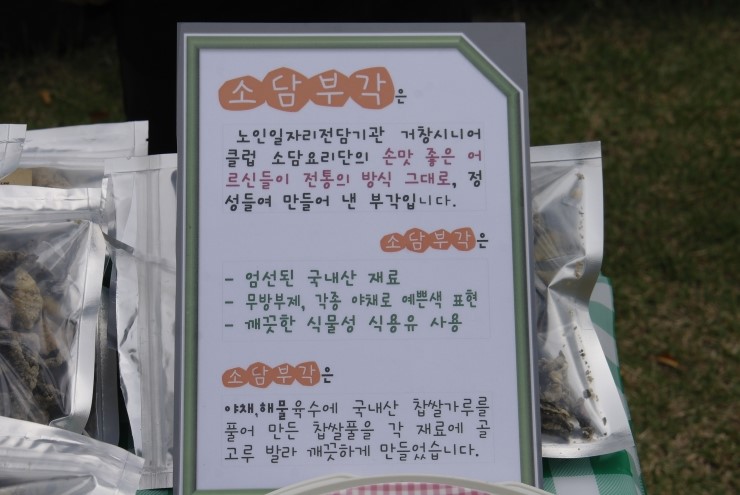 소담부각은
노인일자리전담기관 거창시니어
클럽 소담요리단의 손맛 좋은 어
르신들이 전통의 방식 그대로, 정
성들여 만들어 낸 부각입니다.
소담부각은
- 엄선된 국내산 재료
- 무방부제, 각종 야채로 예쁜색 표현
- 깨끗한 식물성 식용유 사용
소담부각은
야채,해물육수에 국내산 찹쌀가루를
풀어 만든 찹쌀풀을 각 재료에 골
고루 발라 깨끗하게 만들었습니다.